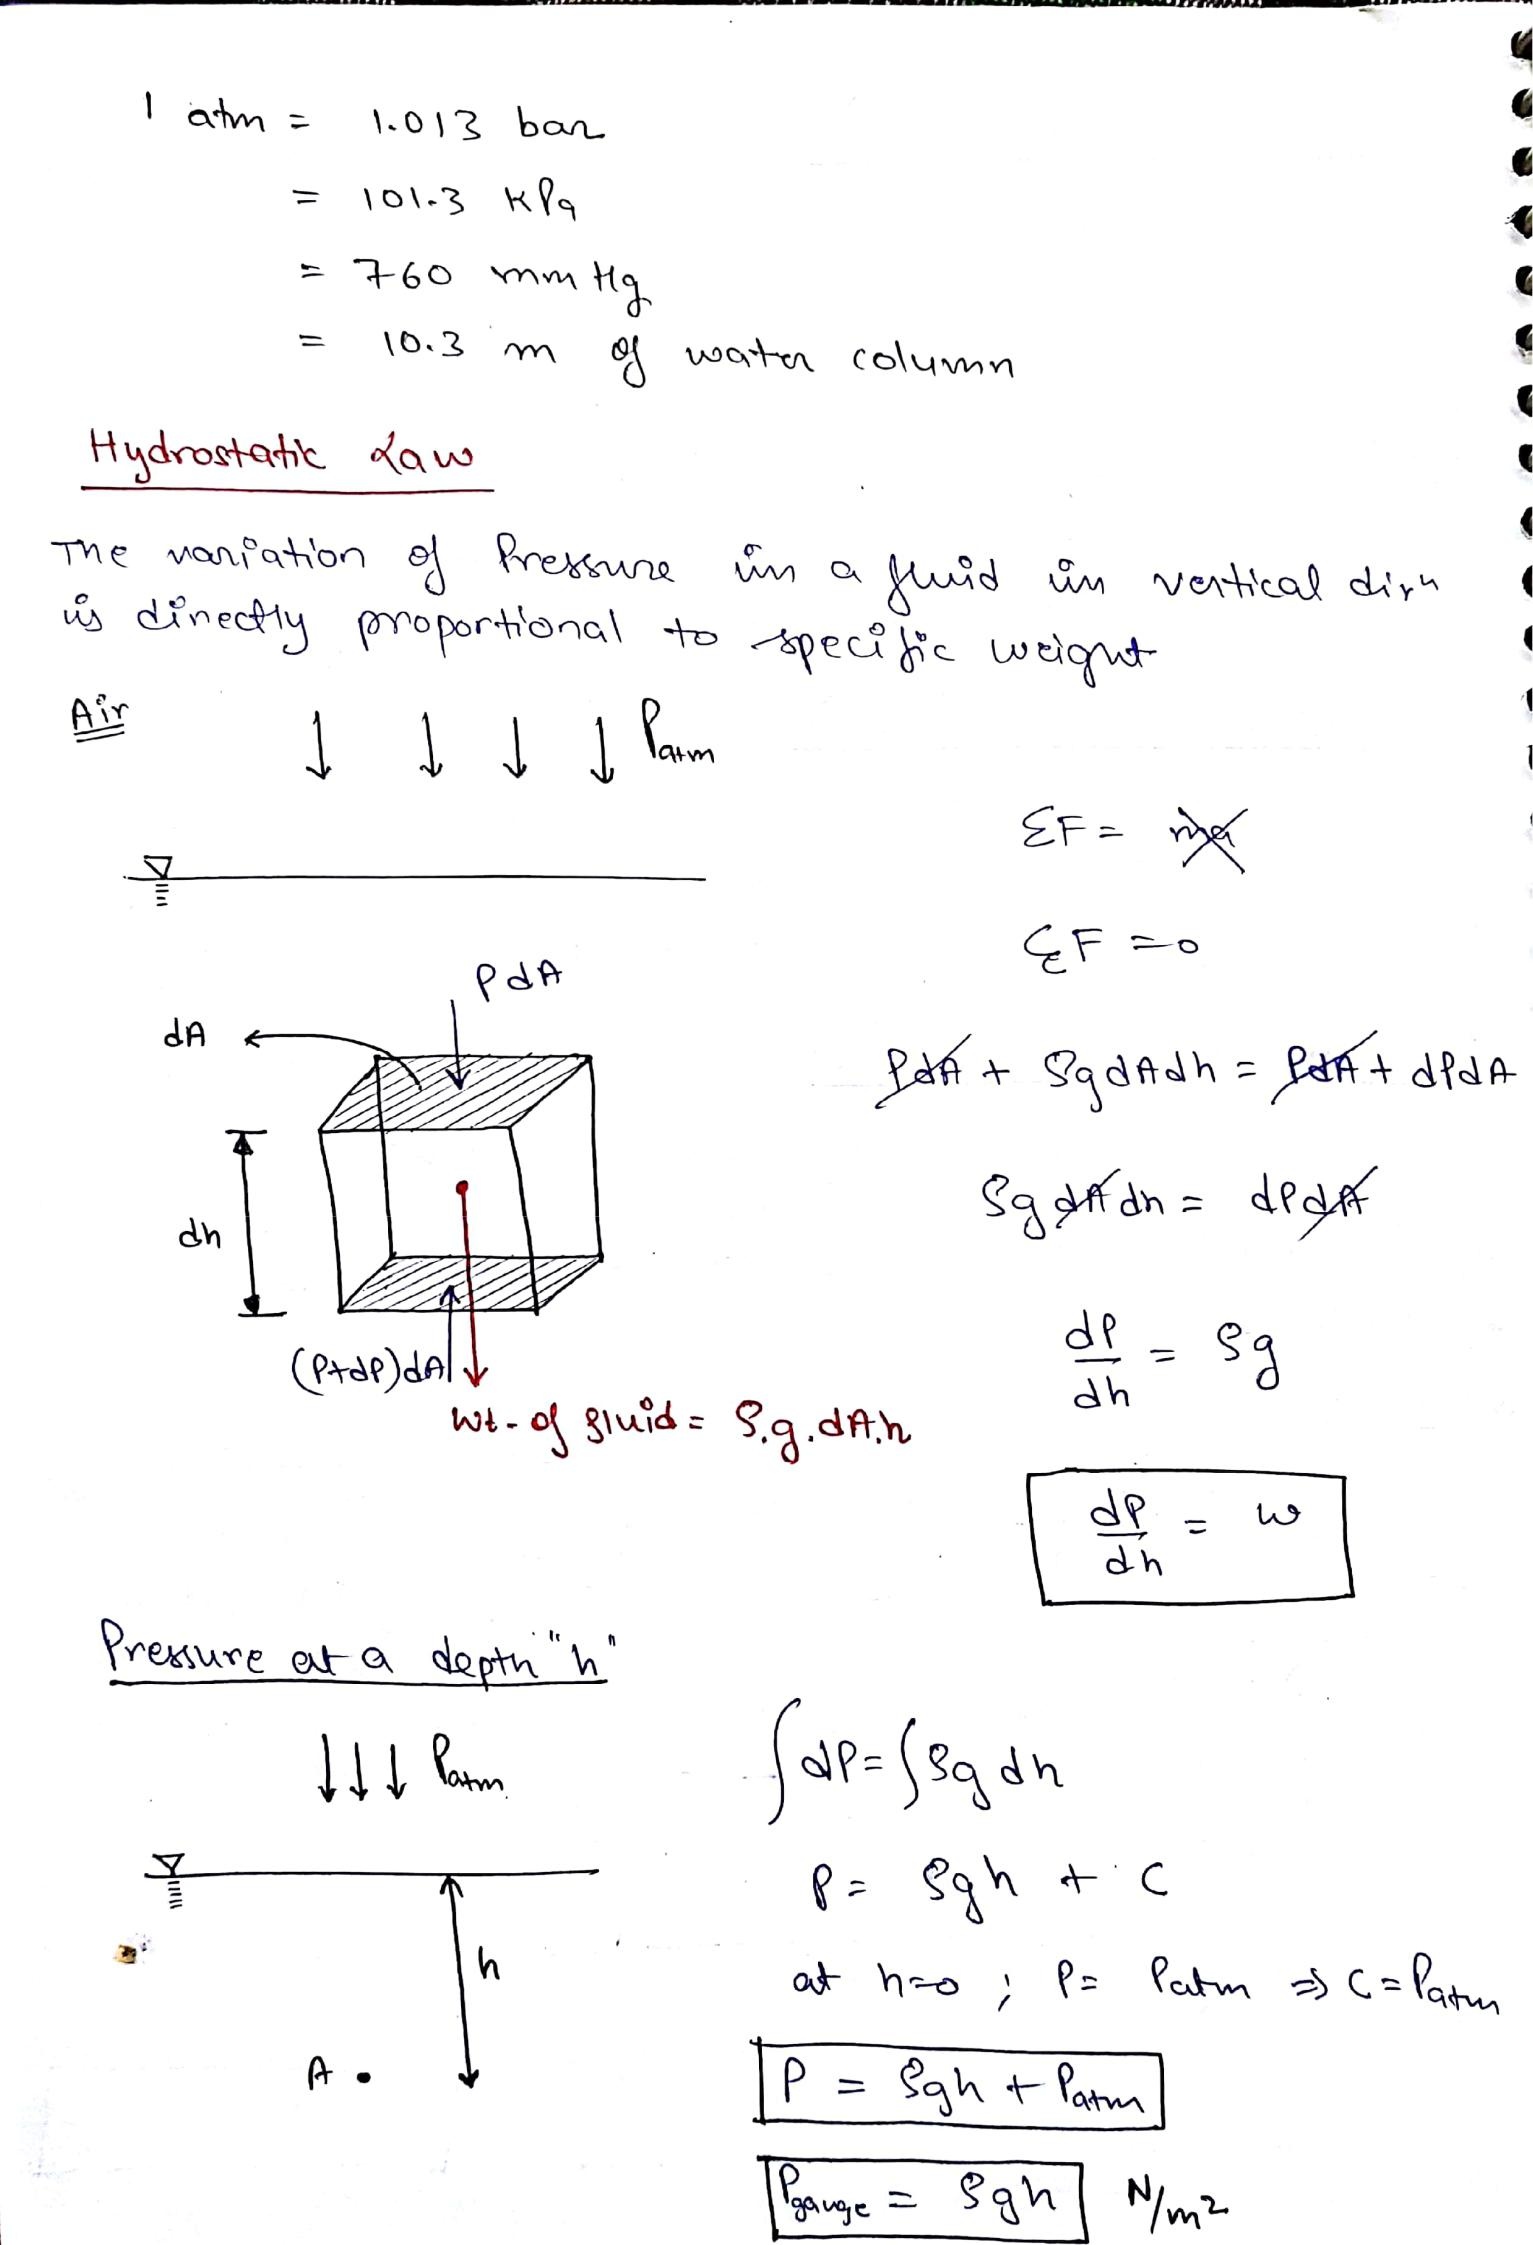 1 atm = 1.013 bar
= 101.3 KPa
= 760 mm Hg
= 10.3 m of water column
Hydrostatic Law
The variation of Pressure in a fluid in vertical dirn
is directly proportional to specific weight
Air
Patm
ΣF = ma
ΣF = 0
PdA
dA
PdA + ρgdAdh = PdA + dPdA
ρg dA dh = dPdA
dh
(P+dP)dA
dP/dh = ρg
wt. of fluid = ρ.g.dA.h
dP/dh = w
Pressure at a depth "h"
Patm
∫dP = ∫ρg dh
P = ρgh + C
h
at h=0 ; P = Patm ⇒ C = Patm
A
P = ρgh + Patm
Pgauge = ρgh N/m²